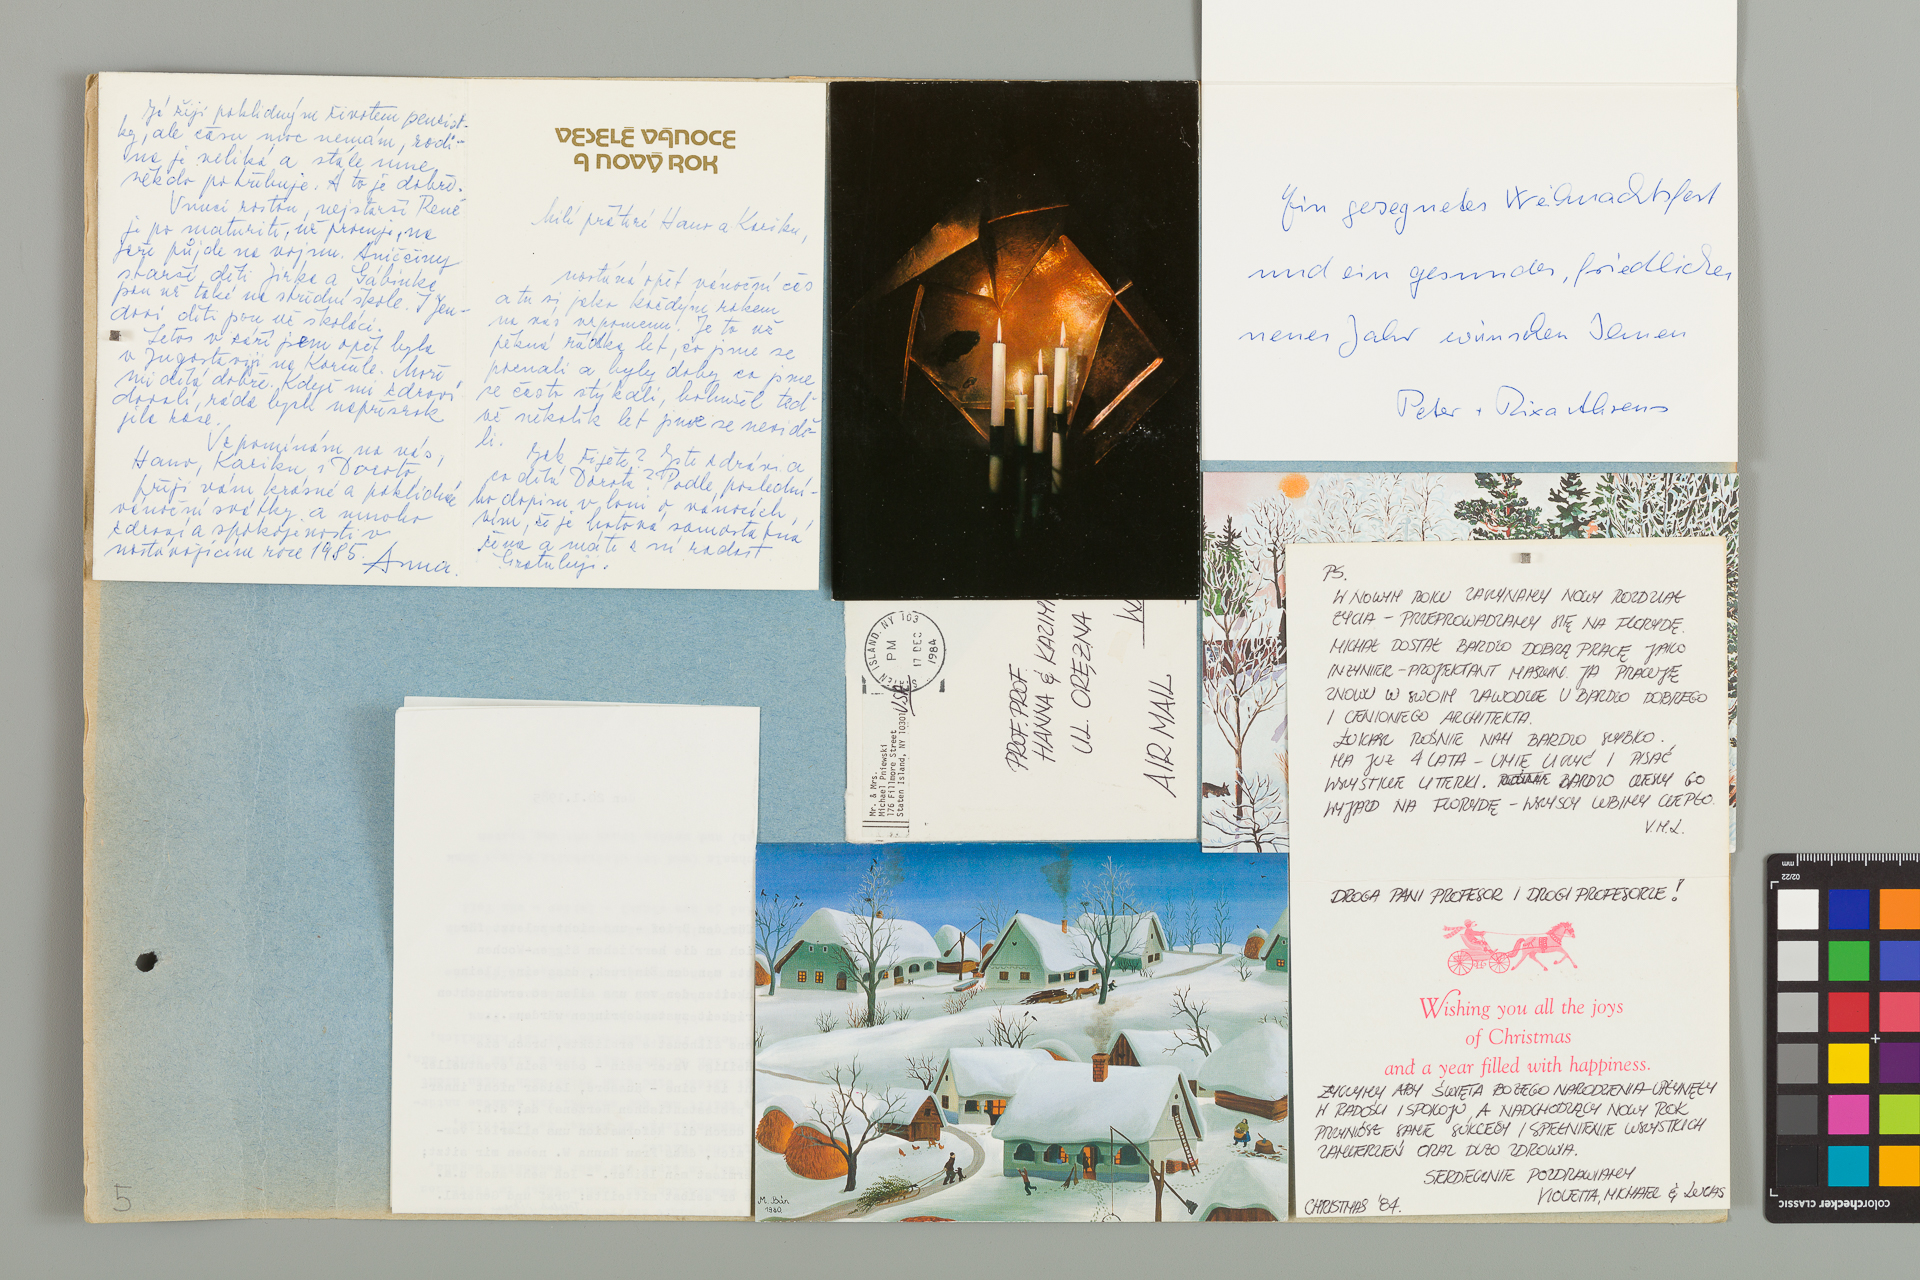 Já žiji poklidným životem penzist-
ky, ale času moc nemám, rodi-
na je veliká a stále mne
někdo potřebuje. A to je dobře.
Vnuci rostou, nejstarší René
je po maturitě, už pracuje, na
jaře půjde na vojnu. Aniččiny
starší děti Jirka a Gábinka
jsou už také na střední škole. I Jen-
dovi děti jsou už školáci.
Letos v září jsem opět byla
v Jugoslavii na Korčule. Moře
mi dělá dobře. Když mi zdraví
dovolí, ráda bych napřesrok
jela zase.
Vzpomínám na vás,
Hano, Kaziku i Doroto
přeji vám krásné a poklidné
vánoční svátky a mnoho
zdraví a spokojenosti v
nastávajícím roce 1985. Anna.
VESELÉ VÁNOCE
A NOVÝ ROK
Milí přátelé Hano a Kaziku,
nastává opět vánoční čas
a tu si jako každým rokem
na vás vzpomenu. Je to už
pěkná řádka let, co jsme se
poznali a byly doby, co jsme
se často stýkali, bohužel teď
už několik let jsme se nevidě-
li.
Jak žijete? Jste zdrávi a
co dělá Dorota? Podle poslední-
ho dopisu v loni o vánocích
vím, že je hotová samostatná
žena a máte z ní radost
Gratuluji.
Ein gesegnetes Weihnachtsfest
und ein gesundes, friedliches
neues Jahr wünschen Ihnen
Peter + Rixa Ahrens
STATEN ISLAND, NY 103
PM
17 DEC
1984
USA
Mr. & Mrs.
Michael Pniewski
176 Fillmore Street
Staten Island, NY 10301
PROF. PROF
HANNA & KAZIM
UL. ORĘŻNA
AIR MAIL
PS.
W NOWYM ROKU ZACZYNAMY NOWY ROZDZIAŁ
ŻYCIA – PRZEPROWADZAMY SIĘ NA FLORYDĘ.
MICHAŁ DOSTAŁ BARDZO DOBRĄ PRACĘ JAKO
INŻYNIER-PROJEKTANT MASZYN. JA PRACUJĘ
ZNOWU W SWOIM ZAWODZIE U BARDZO DOBREGO
I CENIONEGO ARCHITEKTA.
ŁUKASZ ROŚNIE NAM BARDZO SZYBKO.
MA JUŻ 4 LATA – UMIE LICZYĆ I PISAĆ
WSZYSTKIE LITERKI. BARDZO CIESZY GO
WYJAZD NA FLORYDĘ – WSZYSCY LUBIMY CIEPŁO.
V.M.L.
DROGA PANI PROFESOR I DROGI PROFESORZE!
Wishing you all the joys
of Christmas
and a year filled with happiness.
ŻYCZYMY ABY ŚWIĘTA BOŻEGO NARODZENIA UPŁYNĘŁY
W RADOŚCI I SPOKOJU, A NADCHODZĄCY NOWY ROK
PRZYNIÓSŁ SAME SUKCESY I SPEŁNIENIE WSZYSTKICH
ZAMIERZEŃ ORAZ DUŻO ZDROWIA.
SERDECZNIE POZDRAWIAMY
VIOLETTA, MICHAEL & LUCAS
CHRISTMAS '84.
M. Bán
1980
5
mm
02/22
colorchecker CLASSIC